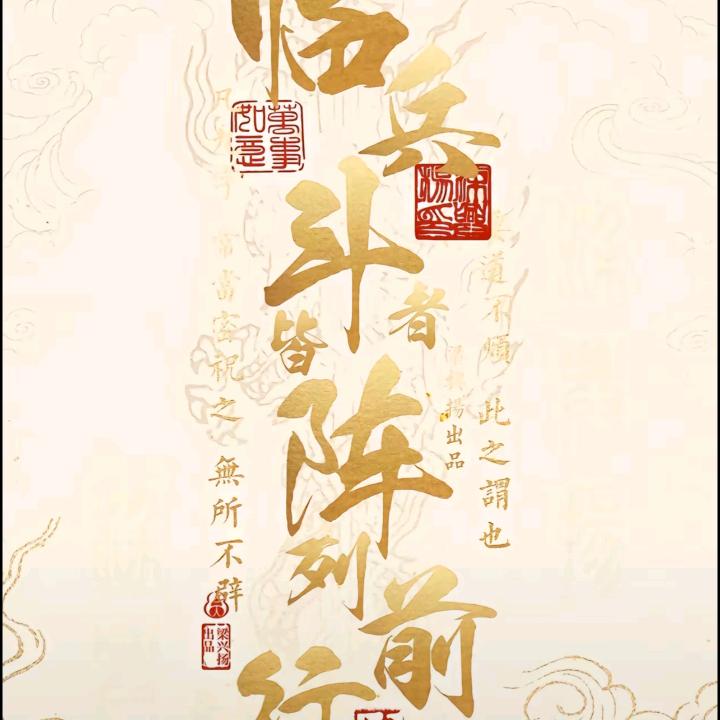 临兵斗者
皆阵列前
行
萬事如意
常當密祝之 無所不辟
要道不煩 此之謂也
梁兴扬出品
揚出品